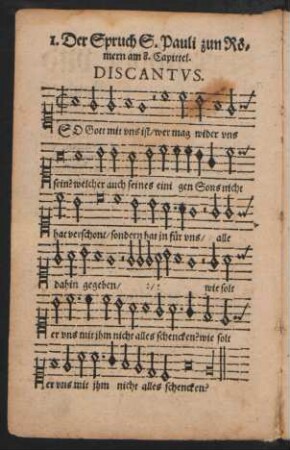 1. Der Spruch S. Pauli zum Rö-
mern am 8. Capittel.
DISCANTVS.
SO Gott mit vns ist/ wer mag wider vns
sein? welcher auch seines eini gen Sons nicht
hat verschont/ sondern hat in für vns/ alle
dahin gegeben/ :/: wie solt
er vns mit jhm nicht alles schencken? wie solt
er vns mit jhm nicht alles schencken?